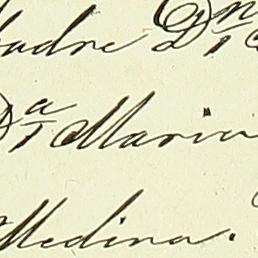 adre Dn
Da Maria
Medina.